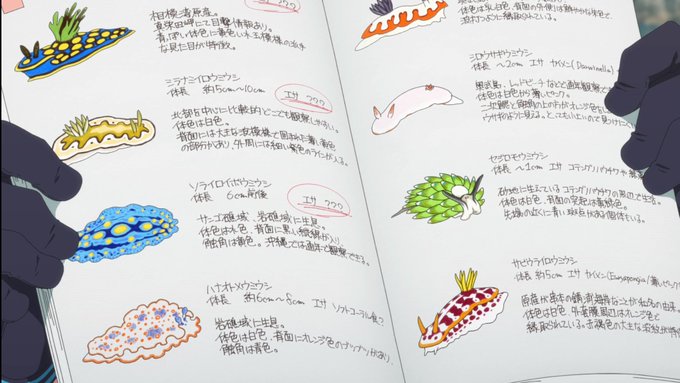 相模湾原産。
真栄田岬にて目撃情報あり。
青っぽい体色に黄色い水玉模様の派手
な見た目が特徴。
ミラナミイロウミウシ
体長 約5cm〜10cm エサ ???
北部を中心に比較的どこでも観察しやすい。
体色は白色。
背面には大きな波模様で囲まれた薄い黄色
の部分があり、外周には細い紫色のラインが入る。
ソライロイボウミウシ エサ ???
体長 6cm前後
サンゴ礁域、岩礁域に生息。
体色は水色。背面に黒い縦線が入り、
触角は黄色。沖縄では通年で観察できる。
ハナオトメウミウシ
体長 約6cm〜8cm エサ ソフトコーラル食?
岩礁域に生息。
体色は白色。背面にオレンジ色のブツブツがあり、
触角は青色。
体色は乳白色。背面の外側には鮮やかな朱色で
縁取られている。
シロウサギウミウシ
体長 〜2cm エサ カイメン
体色は白色から薄いピンク。
ウサギのように見える。とても小さいので見つけ
セジロモウミウシ
体長 〜1cm エサ コテングノハウチワ
砂地に生えているコテングノハウチワの周辺で生活。
体色は白色、背面の突起は黄緑色。
先端の近くに青い斑点がある個体もいる。
サビウライロウミウシ
体長 約5cm エサ カイメン
体色は白色、外套膜周辺はオレンジ色で
縁取られている。赤褐色の大きな斑紋が特